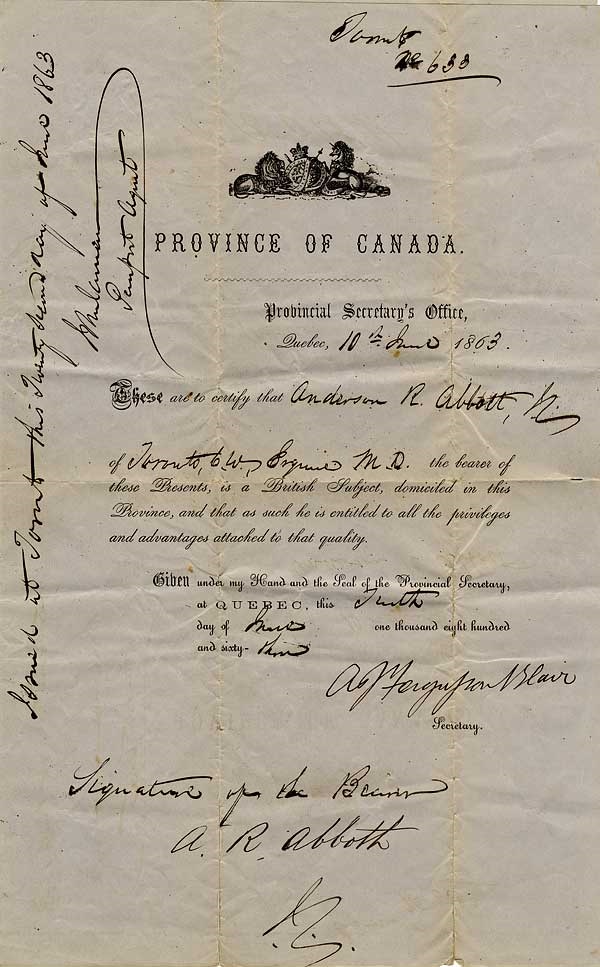 Toronto
633
Issued at Toronto this Twenty Second day of June 1863
Passport Agent
PROVINCE OF CANADA.
Provincial Secretary's Office,
Quebec, 10th June 1863.
These are to certify that Anderson R. Abbott,
of Toronto, C.W., Esquire M.D. the bearer of
these Presents, is a British Subject, domiciled in this
Province, and that as such he is entitled to all the privileges
and advantages attached to that quality.
Given under my Hand and the Seal of the Provincial Secretary,
at QUEBEC, this Tenth
day of June one thousand eight hundred
and sixty-three
A J Fergusson Blair
Secretary.
Signature of the Bearer
A. R. Abbott